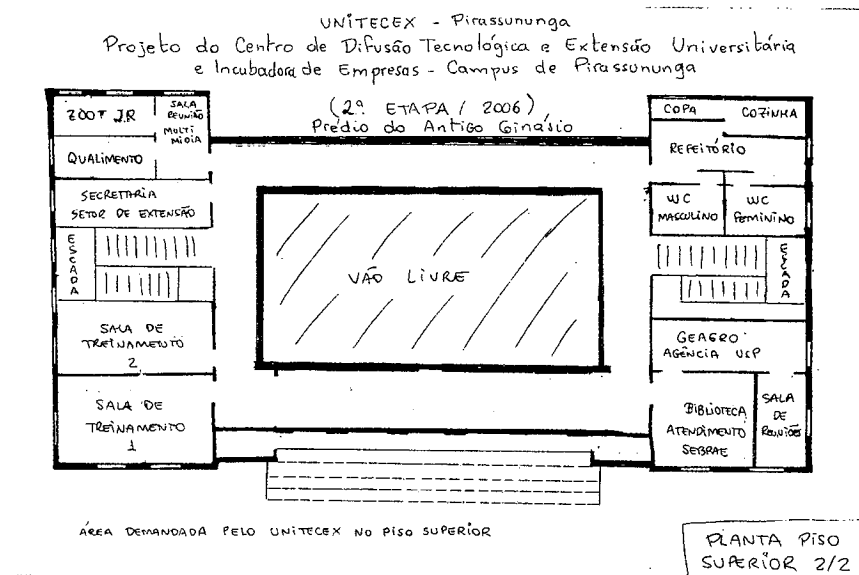 UNITECEX - Pirassununga
Projeto do Centro de Difusão Tecnológica e Extensão Universitária
e Incubadora de Empresas - Campus de Pirassununga
(2ª ETAPA / 2006)
Prédio do Antigo Ginásio
ZOOT JR
SALA
REUNIÃO
MULTI
MIDIA
QUALIMENTO
SECRETARIA
SETOR DE EXTENSÃO
ESCADA
SALA DE
TREINAMENTO
2
SALA DE
TREINAMENTO
1
VÃO LIVRE
COPA
COZINHA
REFEITÓRIO
WC
MASCULINO
WC
FEMININO
ESCADA
GEAGRO
AGÊNCIA USP
BIBLIOTECA
ATENDIMENTO
SEBRAE
SALA
DE
REUNIÕES
ÁREA DEMANDADA PELO UNITECEX NO PISO SUPERIOR
PLANTA PISO
SUPERIOR 2/2